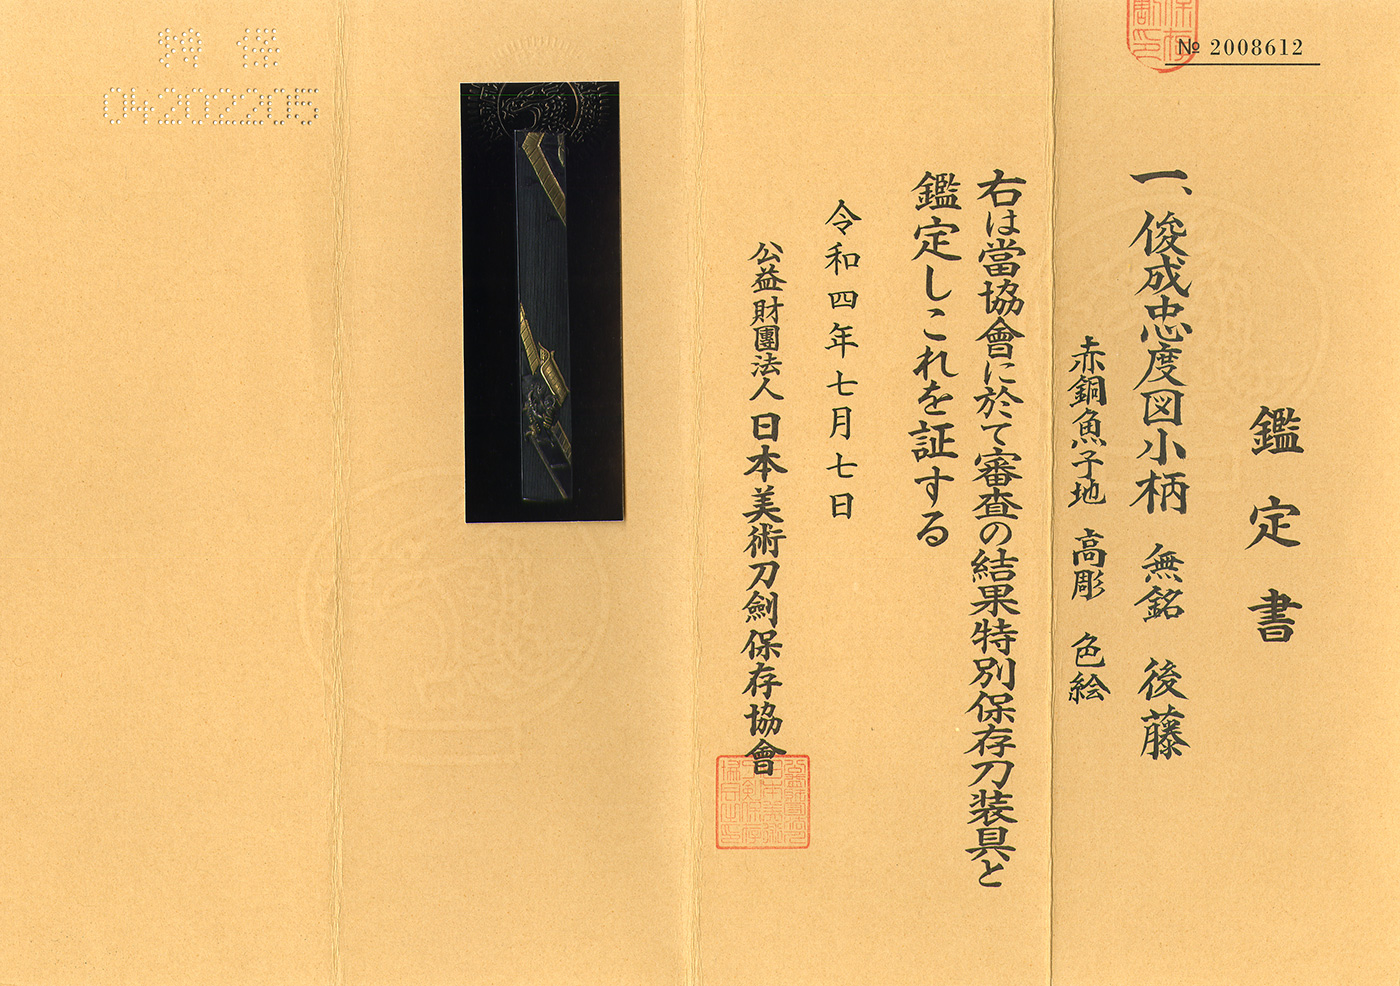 № 2008612
鑑定書
一、俊成忠度図小柄 無銘 後藤
赤銅魚子地 高彫 色絵
右は當協會に於て審査の結果特別保存刀装具と
鑑定しこれを証する
令和四年七月七日
公益財團法人 日本美術刀劍保存協會
04202205